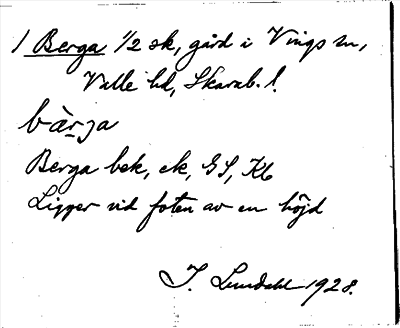 1 Berga 1/2 sk, gård i Vings sn,
Valle hd, Skarab. l.
bärja
Berga bek, ek, GS, Kb
Ligger vid foten av en höjd
I. Lundahl 1928.